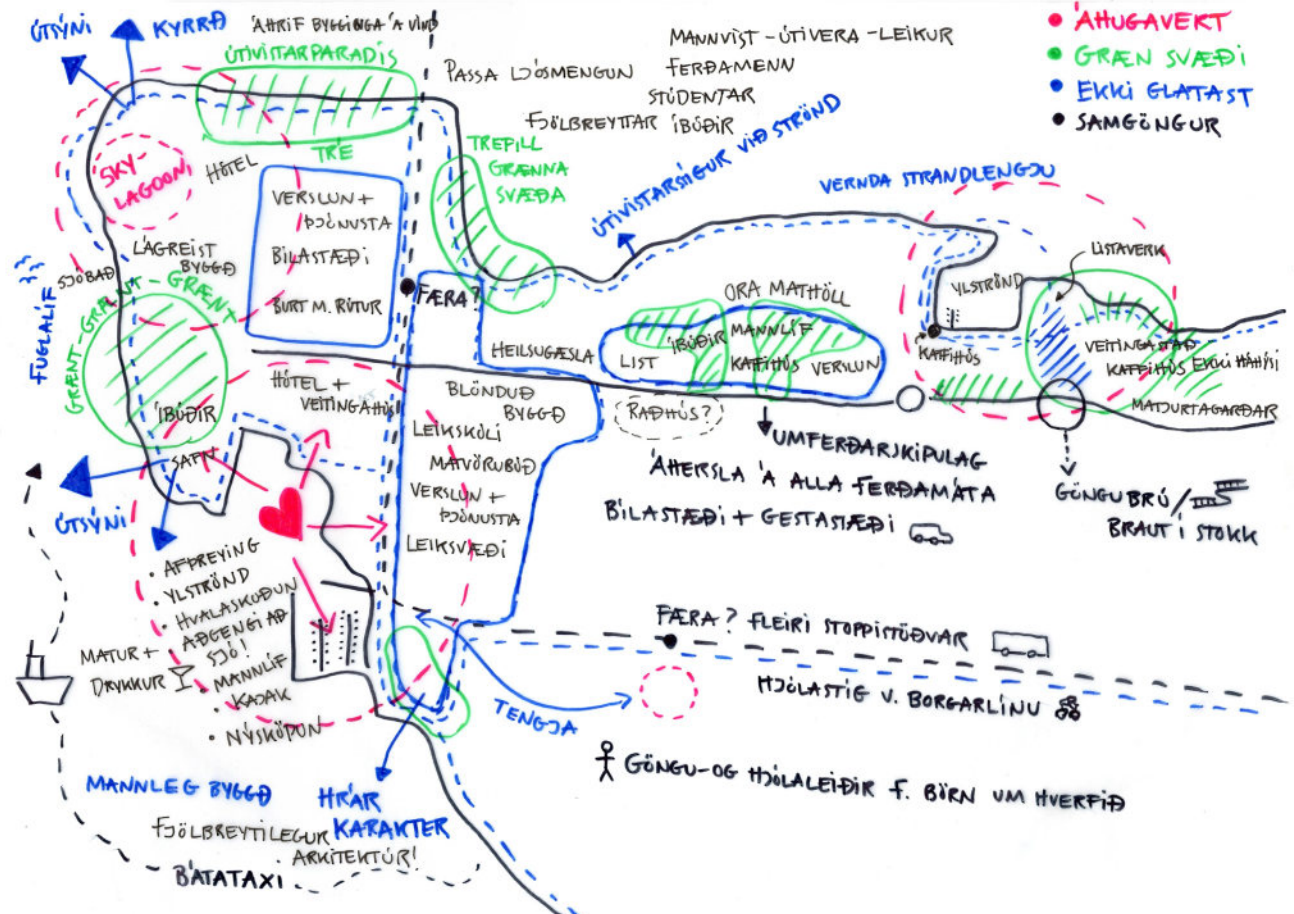 ÚTSÝNI
KYRRÐ
ÁHRIF BYGGINGA Á VIND
ÚTIVISTARPARADÍS
PASSA LJÓSMENGUN
MANNVIST - ÚTIVERA - LEIKUR
FERÐAMENN
STÚDENTAR
FJÖLBREYTTAR ÍBÚÐIR
ÁHUGAVERT
GRÆN SVÆÐI
EKKI GLATAST
SAMGÖNGUR
SKY-
LAGOON
HÓTEL
TRÉ
TREFILL
GRÆNNA
SVÆÐA
ÚTIVISTARSTIGUR VIÐ STRÖND
VERNDA STRANDLENGJU
VERSLUN +
ÞJÓNUSTA
BÍLASTÆÐI
BURT M. RÚTUR
LÁGREIST
BYGGÐ
SJÓBAÐ
FUGLALÍF
GRÆNT-GRÆNT-GRÆNT
ÍBÚÐIR
SAFN
FÆRA?
HEILSUGÆSLA
ORA MATHÖLL
LIST
ÍBÚÐIR
MANNLÍF
KAFFIHÚS
VERSLUN
YLSTRÖND
LISTAVERK
KAFFIHÚS
VEITINGASTAÐ
KAFFIHÚS
EKKI HÁHÝSI
MATJURTAGARÐAR
HÓTEL +
VEITINGAHÚS
BLÖNDUÐ
BYGGÐ
LEIKSKÓLI
MATVÖRUBÚÐ
VERSLUN +
ÞJÓNUSTA
LEIKSVÆÐI
RÁÐHÚS?
UMFERÐARSKIPULAG
ÁHERSLA Á ALLA FERÐAMÁTA
BÍLASTÆÐI + GESTASTÆÐI
GÖNGUBRÚ/
BRAUT Í STOKK
ÚTSÝNI
• AFÞREYING
• YLSTRÖND
• HVALASKOÐUN
• AÐGENGI AÐ
SJÓ!
• MANNLÍF
• KAJAK
• NÝSKÖPUN
MATUR +
DRYKKUR
FÆRA? FLEIRI STOPPISTÖÐVAR
HJÓLASTÍG V. BORGARLÍNU
TENGJA
GÖNGU-OG HJÓLALEIÐIR F. BÖRN UM HVERFIÐ
MANNLEG BYGGÐ
HRÁR
KARAKTER
FJÖLBREYTILEGUR
ARKITEKTÚR!
BÁTATAXI